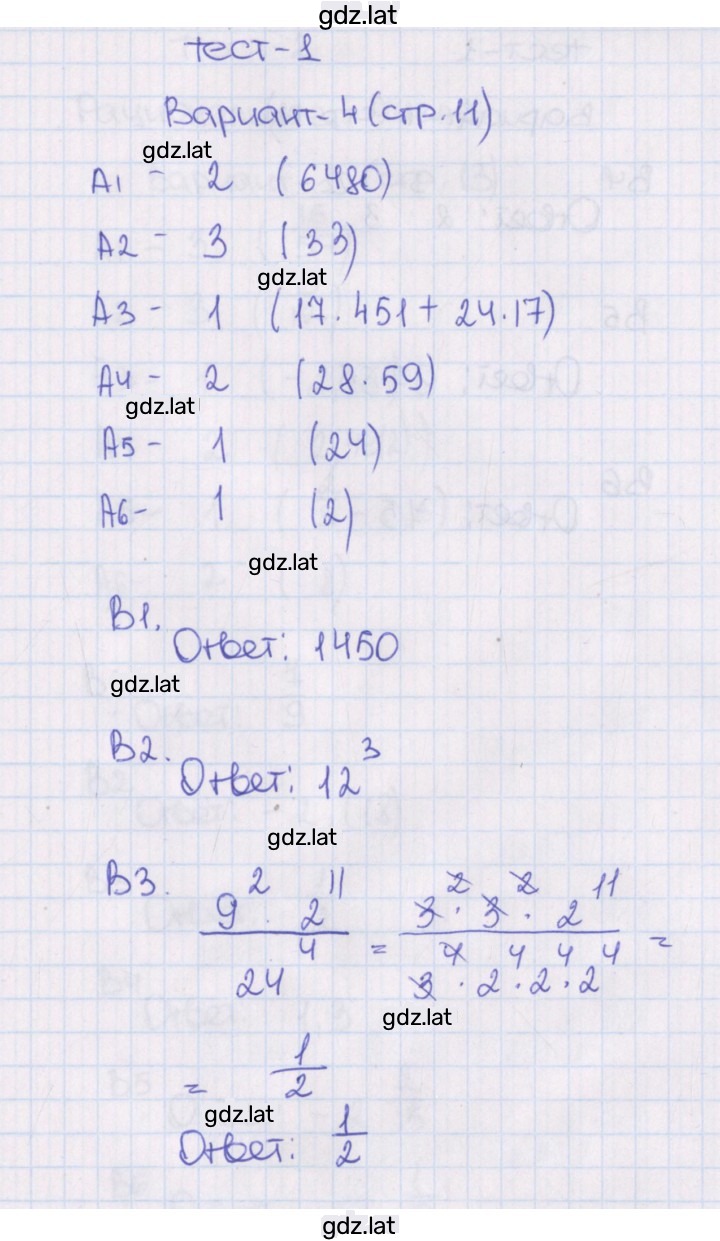 gdz.lat
тест-1
Вариант-4 (стр.11)
gdz.lat
A1 - 2 (6480)
A2 - 3 (33)
gdz.lat
A3 - 1 (17.451 + 24.17)
A4 - 2 (28.59)
gdz.lat
A5 - 1 (24)
A6- 1 (2)
gdz.lat
B1.
Ответ: 1450
gdz.lat
B2.
Ответ: 12³
gdz.lat
B3. 9² · 2¹¹ / 24⁴ = 3² · 3² · 2¹¹ / 3⁴ · 2⁴ · 2⁴ · 2⁴ =
gdz.lat
= 1/2
gdz.lat
Ответ: 1/2
gdz.lat